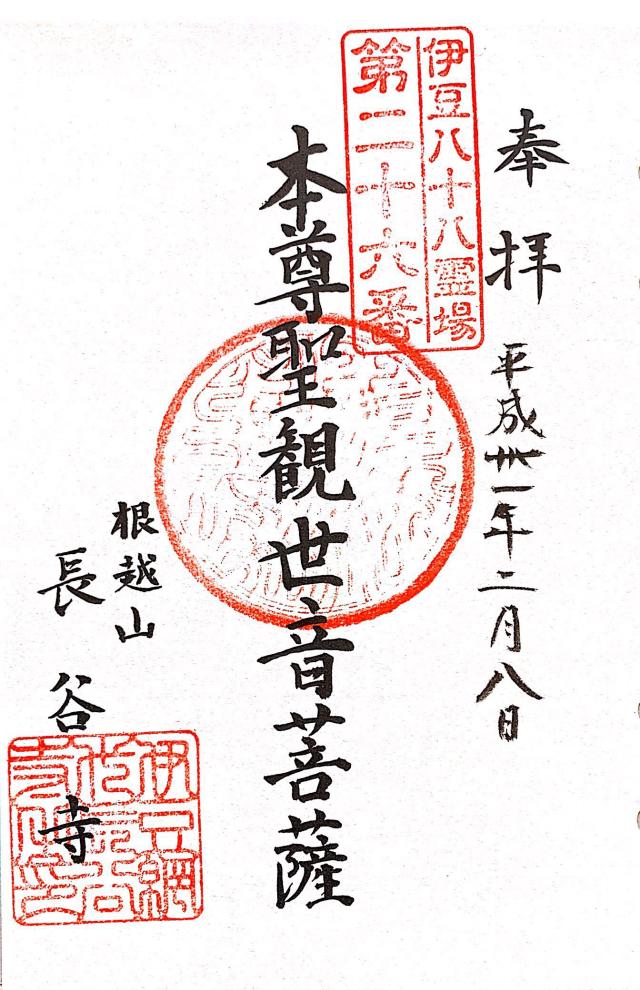 奉拝
平成卅一年二月八日
伊豆八十八霊場
第二十六番
本尊聖観世音菩薩
根越山
長谷寺